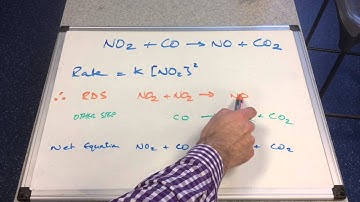 NO₂ + CO → NO + CO₂
Rate = K [NO₂]²
∴ RDS NO₂ + NO₂ → NO
OTHER STEP CO → + CO₂
Net Equation NO₂ + CO + CO₂